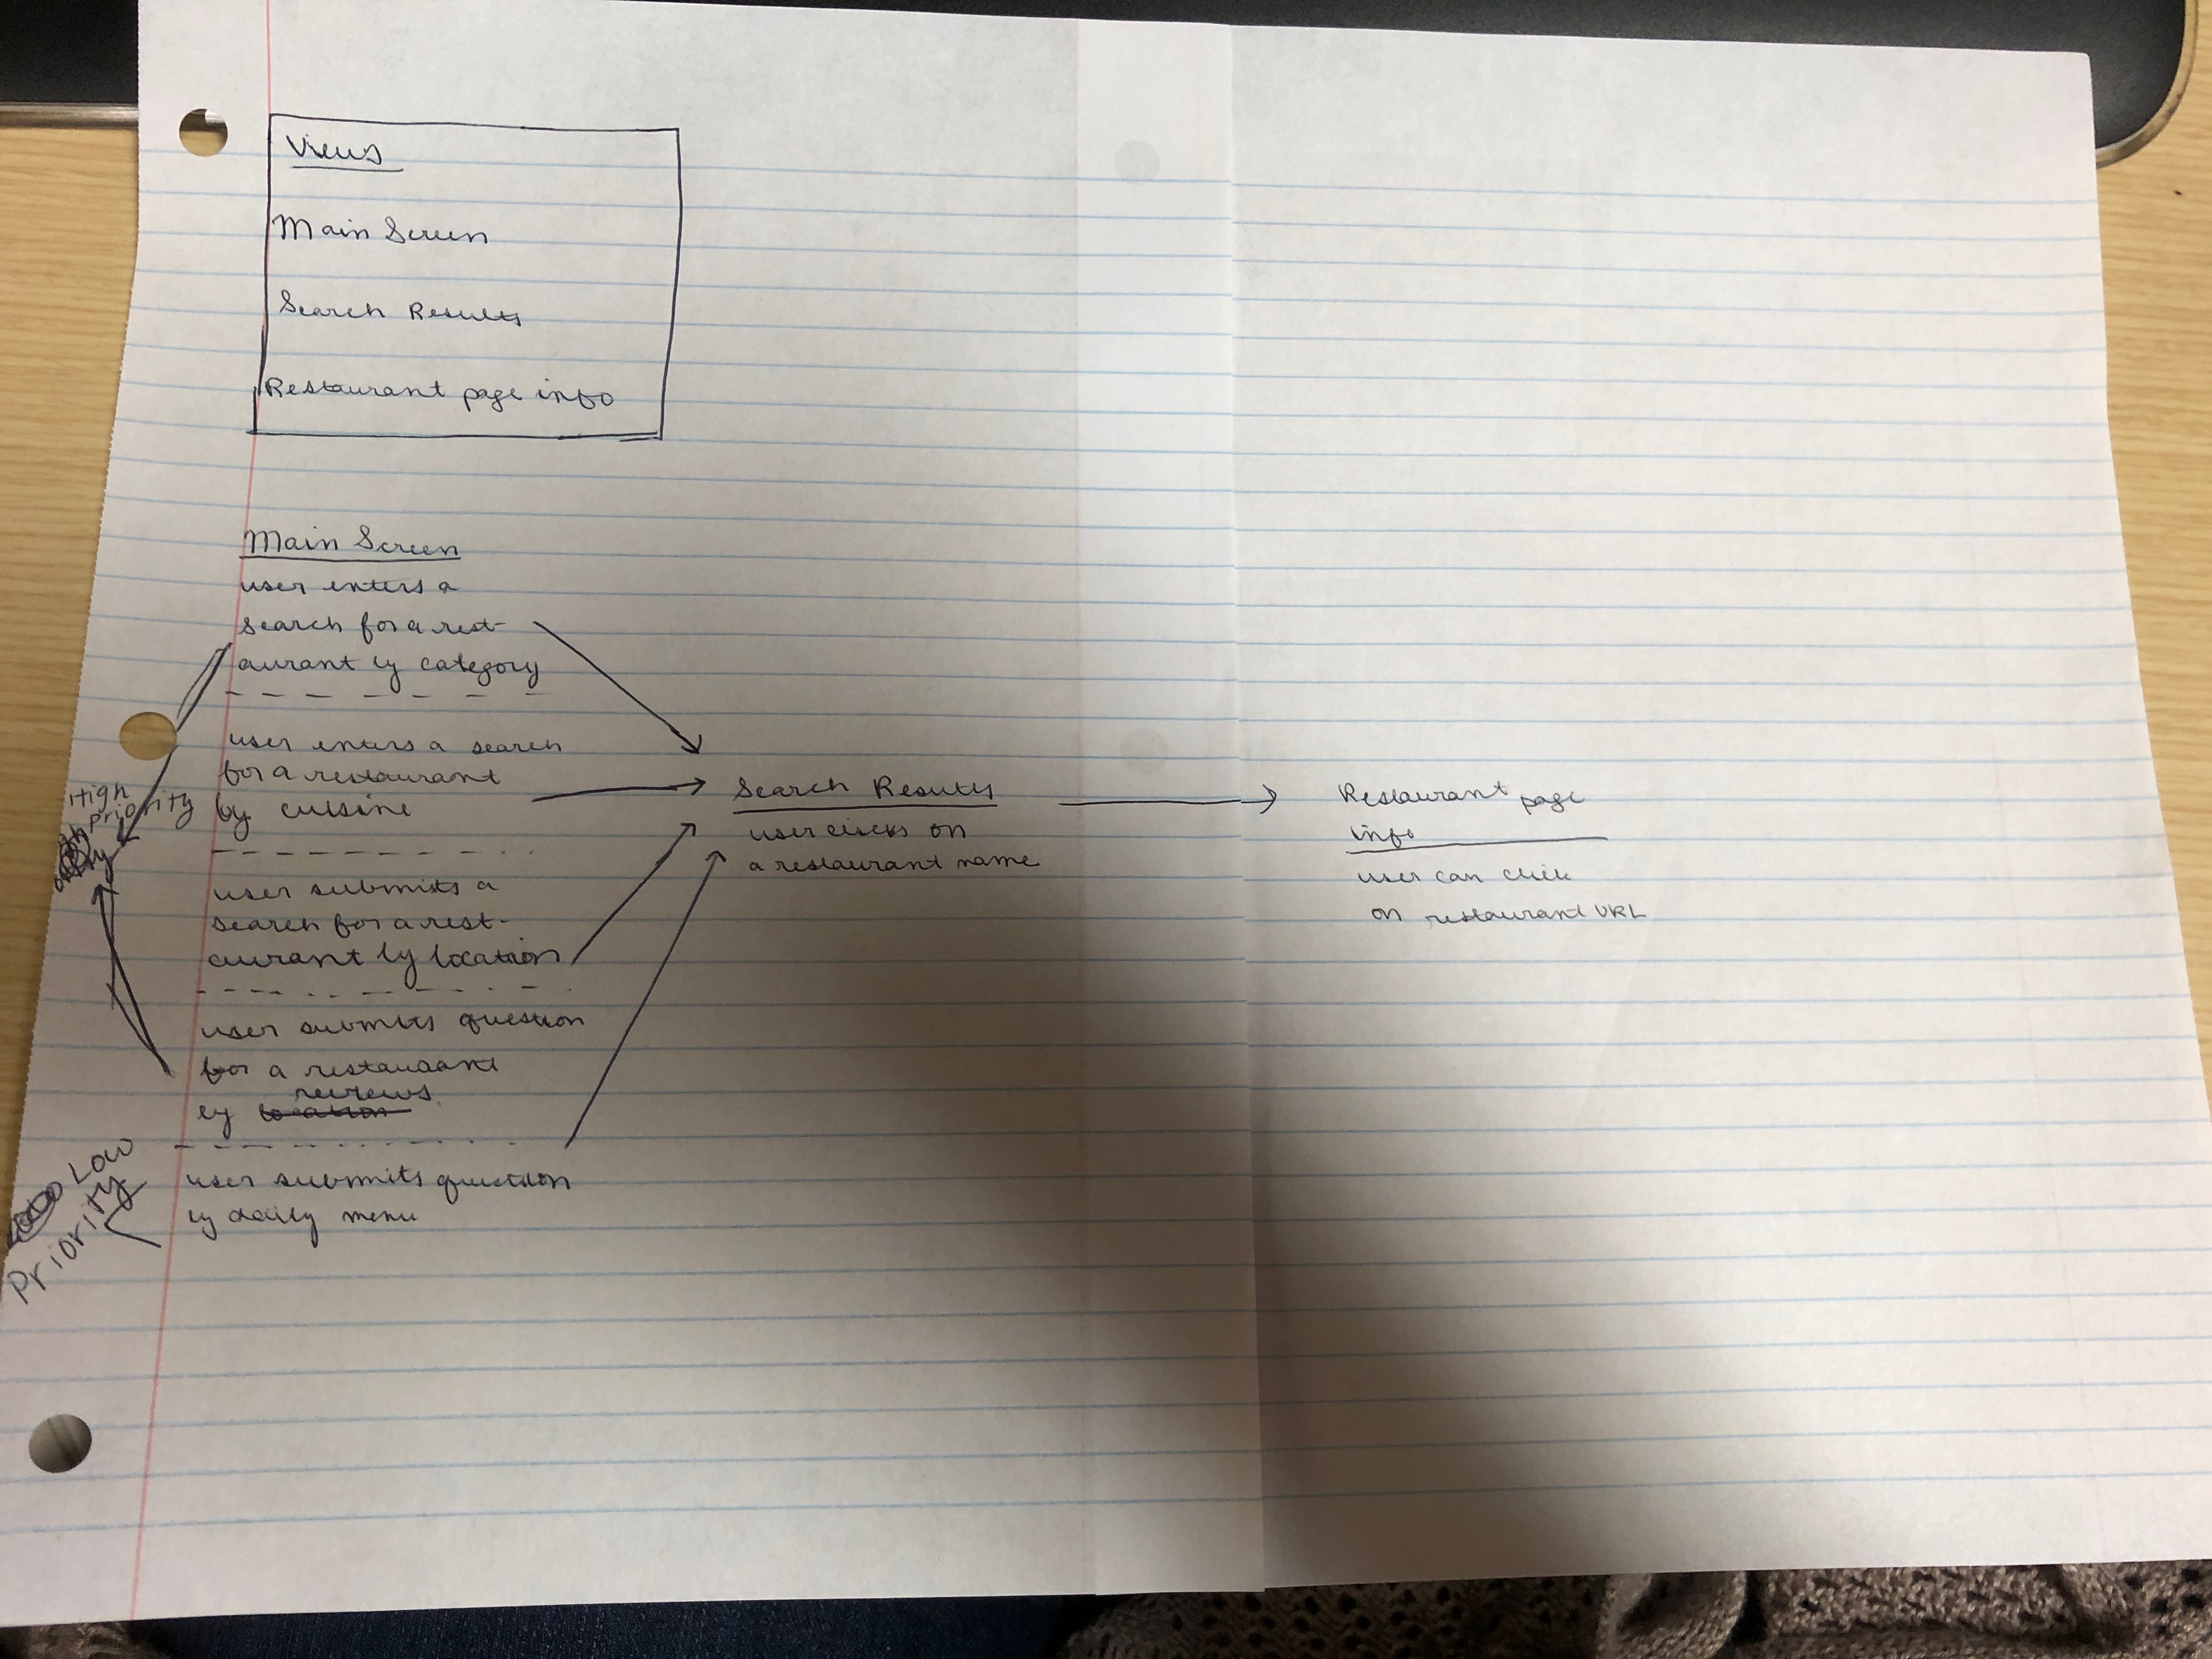 Views
Main Screen
Search Results
Restaurant page info
Main Screen
user enters a
search for a rest-
aurant by category
user enters a search
for a restaurant
by cuisine
High
priority
user submits a
search for a rest-
aurant by location
user submits question
for a restaurant
by location
reviews.
user submits question
by daily menu
Low
Priority
Search Results
user clicks on
a restaurant name
Restaurant page
info
user can click
on restaurant URL